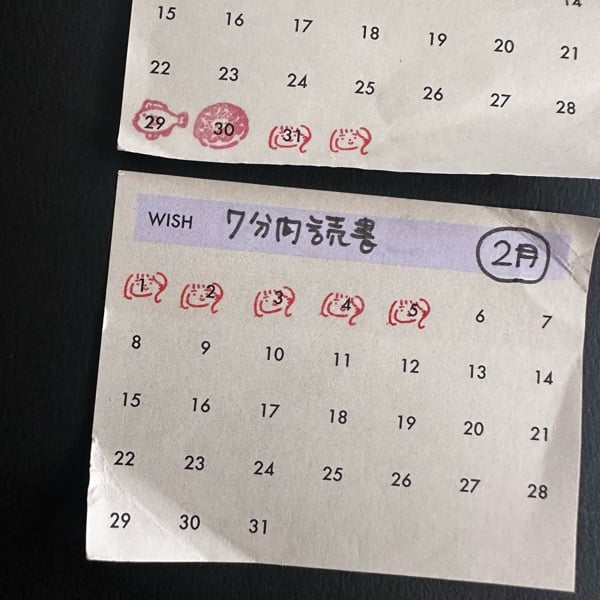 14
15 16 17 18 19 20 21
22 23 24 25 26 27 28
29 30 31
WISH 7分間読書 2月
1 2 3 4 5 6 7
8 9 10 11 12 13 14
15 16 17 18 19 20 21
22 23 24 25 26 27 28
29 30 31